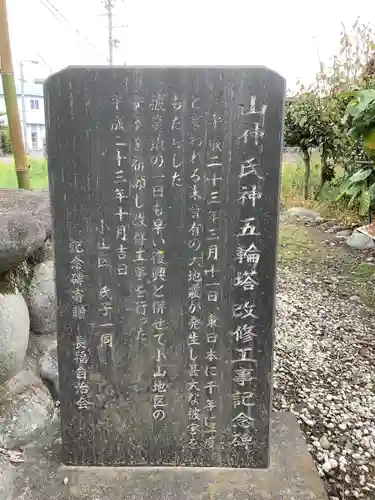 山仲氏神五輪塔改修工事記念碑
平成二十三年三月十一日東日本に千年に一度
と言われる未曾有の大地震が発生し甚大な被害を
もたらした
被災地の一日も早い復興と併せて小山地区の
安泰を祈願し改修工事を行った
平成二十三年十月吉日
小山区 氏子一同
記念碑寄贈 長福自治会